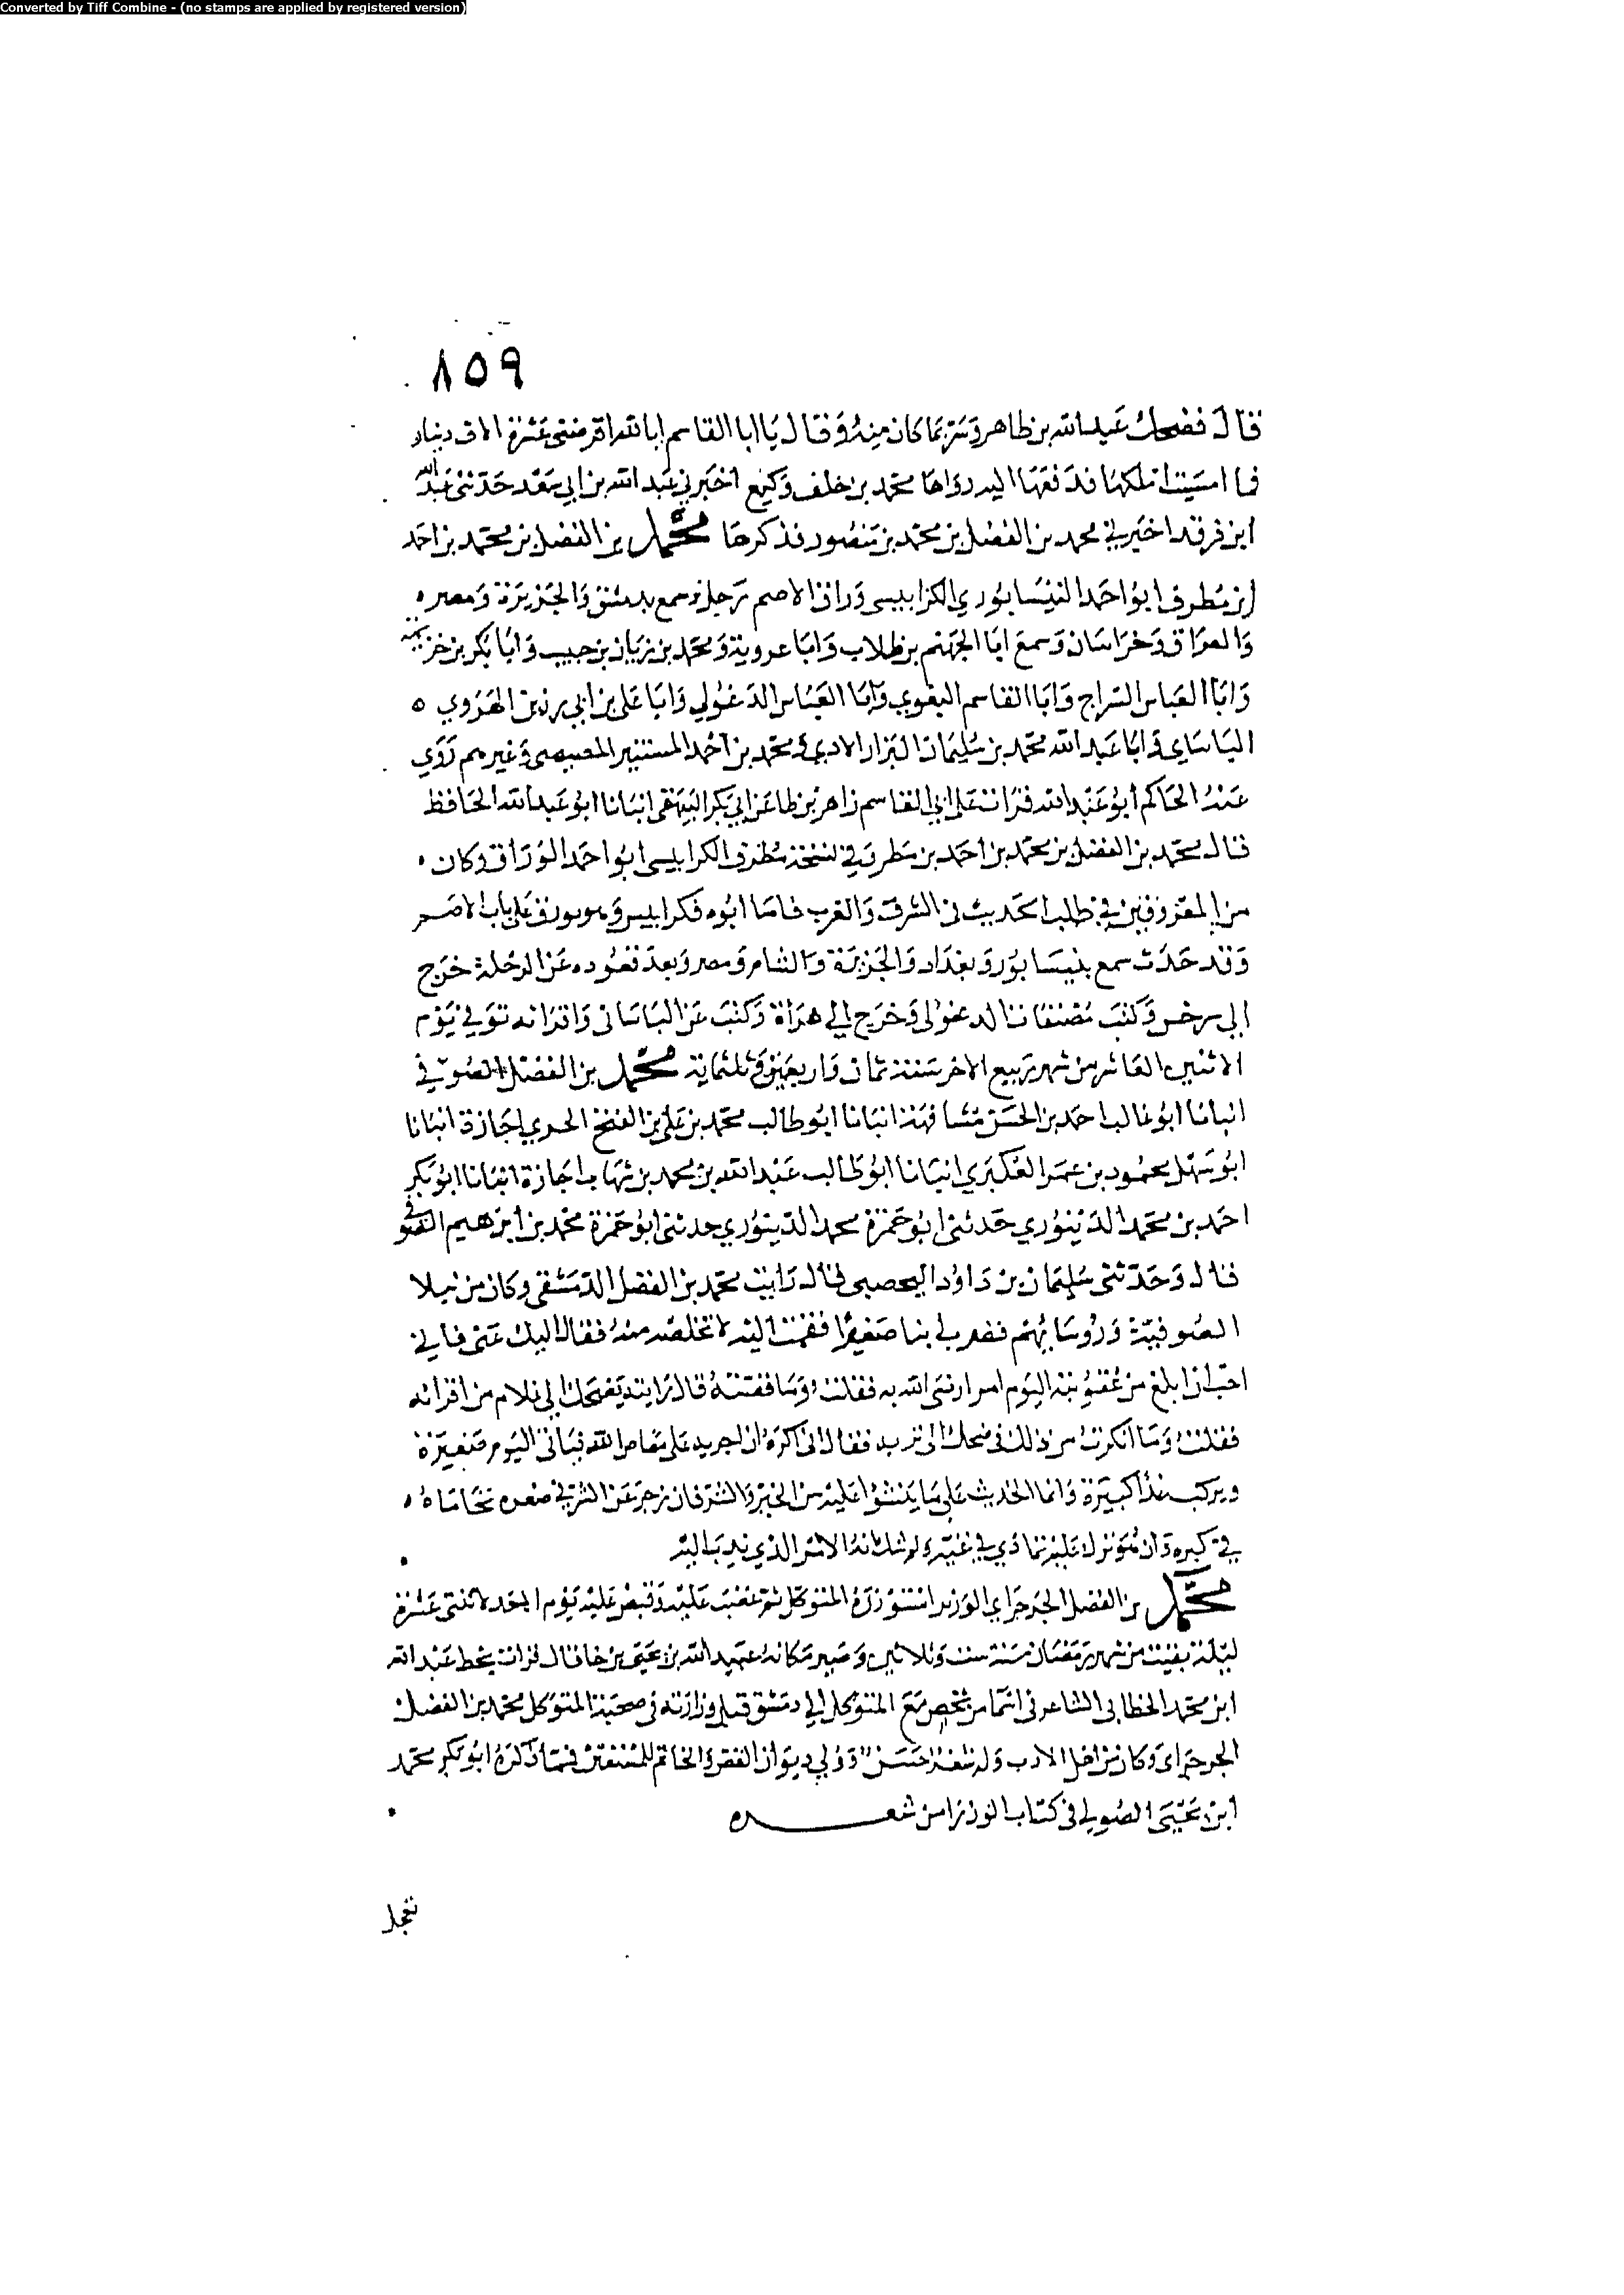 Converted by Tiff Combine - (no stamps are applied by registered version)
٨٥٩
قال فضحك عبد الله بن طاهر وسر بما كان منه وقال يا ابا القاسم ابا لله اقرضني عشرة الاف دينار
فما امسيت املكها فدفعها اليه رواها محمد بن خلف وكيع اخبرني عبد الله بن ابي سعد حدثني عبد الله
ابن فرقد اخبرني محمد بن الفضل بن محمد بن منصور فذكرها محمد بن الفضل بن محمد بن احمد
ابن مطرف ابو احمد النيسابوري الكرابيسي وراق الاصم رحل وسمع بدمشق والجزيرة ومصر
والعراق وخراسان وسمع ابا الجهم بن طلاب وابا عروبة ومحمد بن زبان بن حبيب وابا بكر بن خزيمة
وابا العباس السراج وابا القاسم البغوي وابا العباس الدغولي وابا علي بن ابي الهروي
الباساي وابا عبد الله محمد بن سليمان البزار ومحمد بن احمد المستنير المصيصي وغيرهم روي
عنه الحاكم ابو عبد الله قرات على ابي القاسم زاهر بن طا عن ابي بكر البيهقي انبانا ابو عبد الله الحافظ
قال محمد بن الفضل بن محمد بن احمد بن مطرف وفي نسخة مطرق الكرابيسي ابو احمد الوراق وكان
من المعروفين في طلب الحديث في الشرق والغرب فاما ابوه فكرابيسي وهو يورق على باب الاصم
وقد حدث سمع بنيسابور وبغداد والجزيرة والشام ومصر وبعد قعوده عن الرحلة خرج
الي سرخس وكتب مصنفات الدغولي وخرج الي هراة وكتب عن الباساني واقرانه توفي يوم
الاثنين العاشر من شهر ربيع الاخر سنة ثمان واربعين وثلثماية محمد بن الفضل الصوفي
انبانا ابو غالب احمد بن الحسن مشافهة انبانا ابو طالب محمد بن علي بن الفتح الحربي اجازة انبانا
ابو سهل محمود بن عمر العكبري انبانا ابو طالب عبد الله بن محمد بن شهاب اجازة انبانا ابو بكر
احمد بن محمد الدينوري حدثني ابو حمزة محمد الدينوري حدثني ابو حمزة محمد بن ابرهيم الصوفي
قال وحدثني سليمان بن داود اليحصبي قال رايت محمد بن الفضل الدمشقي وكان من نبلا
الصوفية وروسايهم فضرب ابنا صغيرا فقمت اليه لاخلصه منه فقال اليك عني فاني
احب ان ابلغ من عقوبته اليوم امرا رضي الله به فقلت وما قصته قال رايته يضحك الي غلام من اقرانه
فقلت وما انكرت من ذلك في ضحك الي تربه فقال اني اكره ان اجريه على معاصي الله فياتي اليوم صغيرة
ويركب غدا كبيرة وانما الحدث على ما ينشؤا عليه من الخير والشر فان زجر عن الشر في صغره تحاماه
في كبره وان تمادي في غيه
محمد بن الفضل الجرجراي الوزير استوزره المتوكل ثم غضب عليه وقبض عليه يوم الاحد لاثنتي عشرة
ليلة بقيت من شهر رمضان سنة ست وثلاثين وصير مكانه عبيد الله بن يحيى بن خاقان قرات بخط عبد الله
ابن محمد الخطابي الشاعر في اسما من شخص مع المتوكل الي دمشق قبل وزارته في صحبة المتوكل محمد بن الفضل
الجرجراي وكان من اهل الادب وله شعر حسن وولي ديوان والخاتم للمستعين فيما ذكره ابو بكر محمد
ابن يحيى الصولي في كتاب الوزرا من شعره